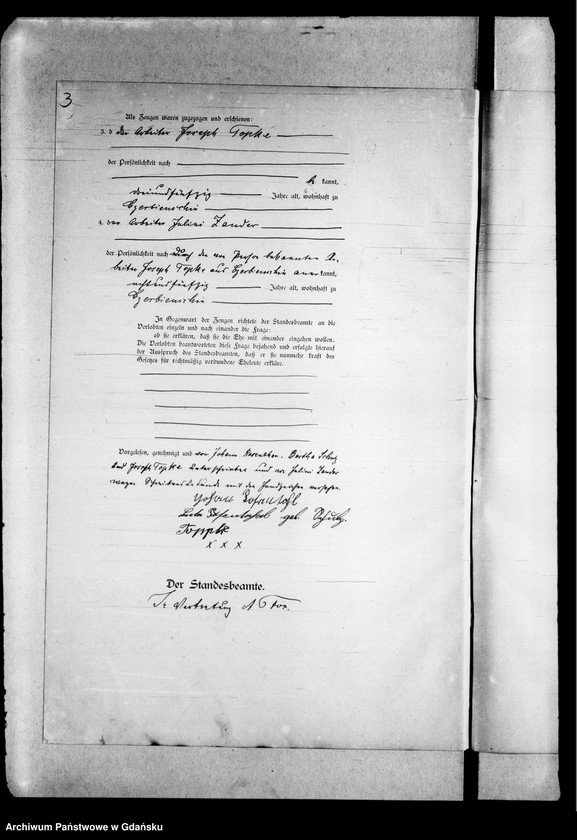 3
Als Zeugen waren zugezogen und erschienen:
3. d er Arbeiter Joseph Topke
der Persönlichkeit nach
kannt,
dreiundfünfzig Jahre alt, wohnhaft zu
4. der Arbeiter Julius Zander
der Persönlichkeit nach durch den von Person bekannten Ar-
beiter Joseph Topke aus anerkannt,
achtundfünfzig Jahre alt, wohnhaft zu
In Gegenwart der Zeugen richtete der Standesbeamte an die
Verlobten einzeln und nach einander die Frage:
ob sie erklären, daß sie die Ehe mit einander eingehen wollen.
Die Verlobten beantworteten diese Frage bejahend und erfolgte hierauf
der Ausspruch des Standesbeamten, daß er sie nunmehr kraft des
Gesetzes für rechtmäßig verbundene Eheleute erkläre.
Vorgelesen, genehmigt und von Johann Bertha Schulz
und Joseph Topke unterschrieben und von Julius Zander
wegen Schreibensunkunde mit Handzeichen versehen.
Johan
geb. Schulz.
Toppke
x x x
Der Standesbeamte.
In Vertretung
Archiwum Państwowe w Gdańsku